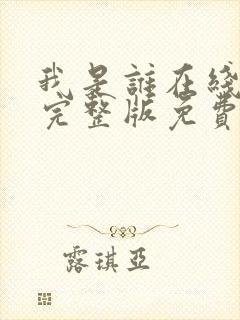 我是誰在綫
完整版免費
露琪亞